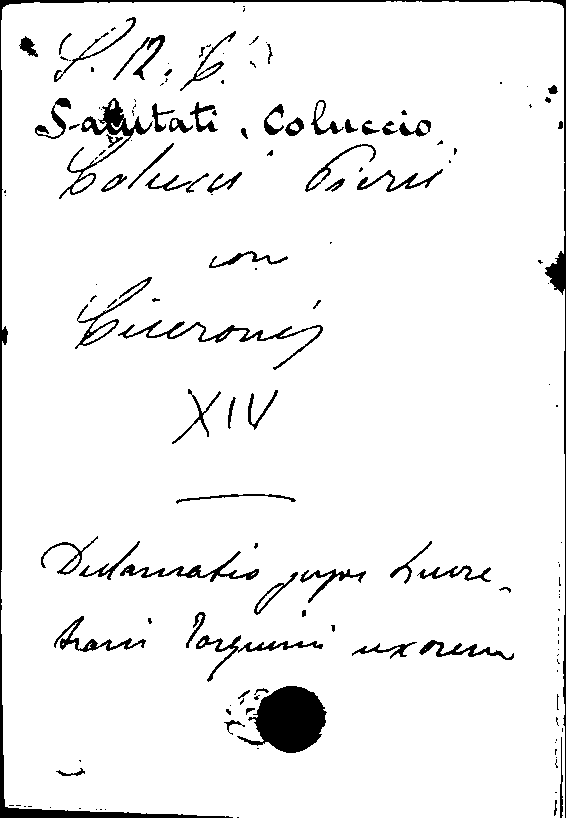 S. 12. 6.
Salutati, Coluccio
Colucci Pieri
con
Ciceronis
XIV
Declamatio super Lucre-
tiam Tarquinii uxorem